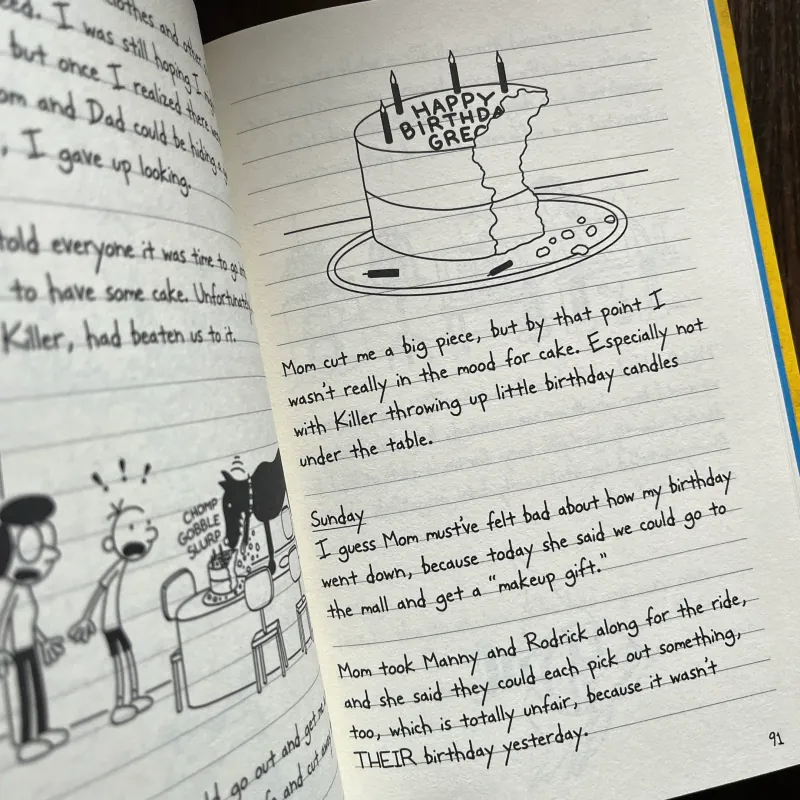 othes and othe
ed. I was still hoping I
but once I realized there
om and Dad could be hiding a
, I gave up looking.
told everyone it was time to go
to have some cake.
Killer, had beaten us to it.
CHOMP
GOBBLE
SLURP
! ! !
go out and get
and cut
HAPPY
BIRTHDA
GREG
Mom cut me a big piece, but by that point I
wasn't really in the mood for cake. Especially not
with Killer throwing up little birthday candles
under the table.
Sunday
I guess Mom must've felt bad about how my birthday
went down, because today she said we could go to
the mall and get a "makeup gift."
Mom took Manny and Rodrick along for the ride,
and she said they could each pick out something,
too, which is totally unfair, because it wasn't
THEIR birthday yesterday.
91